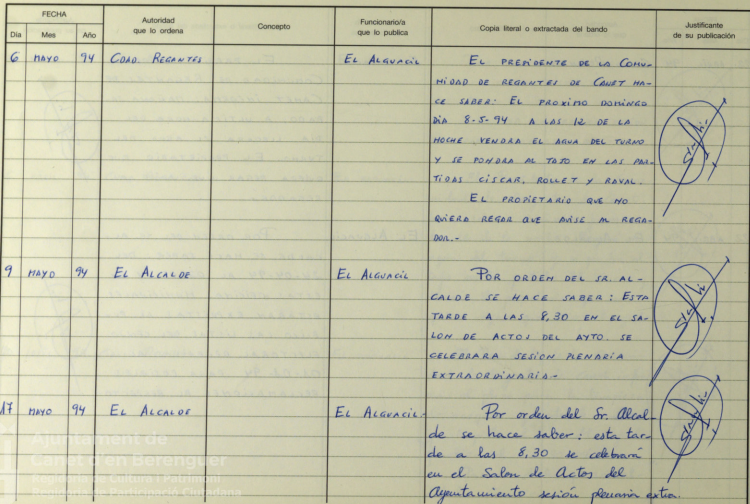 FECHA
Día Mes Año
Autoridad
que lo ordena
Concepto
Funcionario/a
que lo publica
Copia literal o extractada del bando
Justificante
de su publicación
6 MAYO 94 CDAD. REGANTES EL ALGUACIL EL PRESIDENTE DE LA COMU-
NIDAD DE REGANTES DE CANET HA-
CE SABER: EL PROXIMO DOMINGO
DIA 8-5-94 A LAS 12 DE LA
NOCHE VENDRA EL AGUA DEL TURNO
Y SE PONDRA AL TAJO EN LAS PAR-
TIDAS CISCAR, ROLLET Y RAVAL.
EL PROPIETARIO QUE NO
QUIERA REGAR QUE AVISE AL REGA-
DOR.-
9 MAYO 94 EL ALCALDE EL ALGUACIL POR ORDEN DEL SR. AL-
CALDE SE HACE SABER: ESTA
TARDE A LAS 8,30 EN EL SA-
LON DE ACTOS DEL AYTO. SE
CELEBRARA SESION PLENARIA
EXTRAORDINARIA.-
17 MAYO 94 EL ALCALDE EL ALGUACIL.- Por orden del Sr. Alcal-
de se hace saber: esta tar-
de a las 8,30 se celebrará
en el Salon de Actos del
Ayuntamiento sesión plenaria extra.
Ajuntament de
Canet d'en Berenguer
Regidoria de Cultura i Patrimoni
Regidoria de Participació Ciutadana